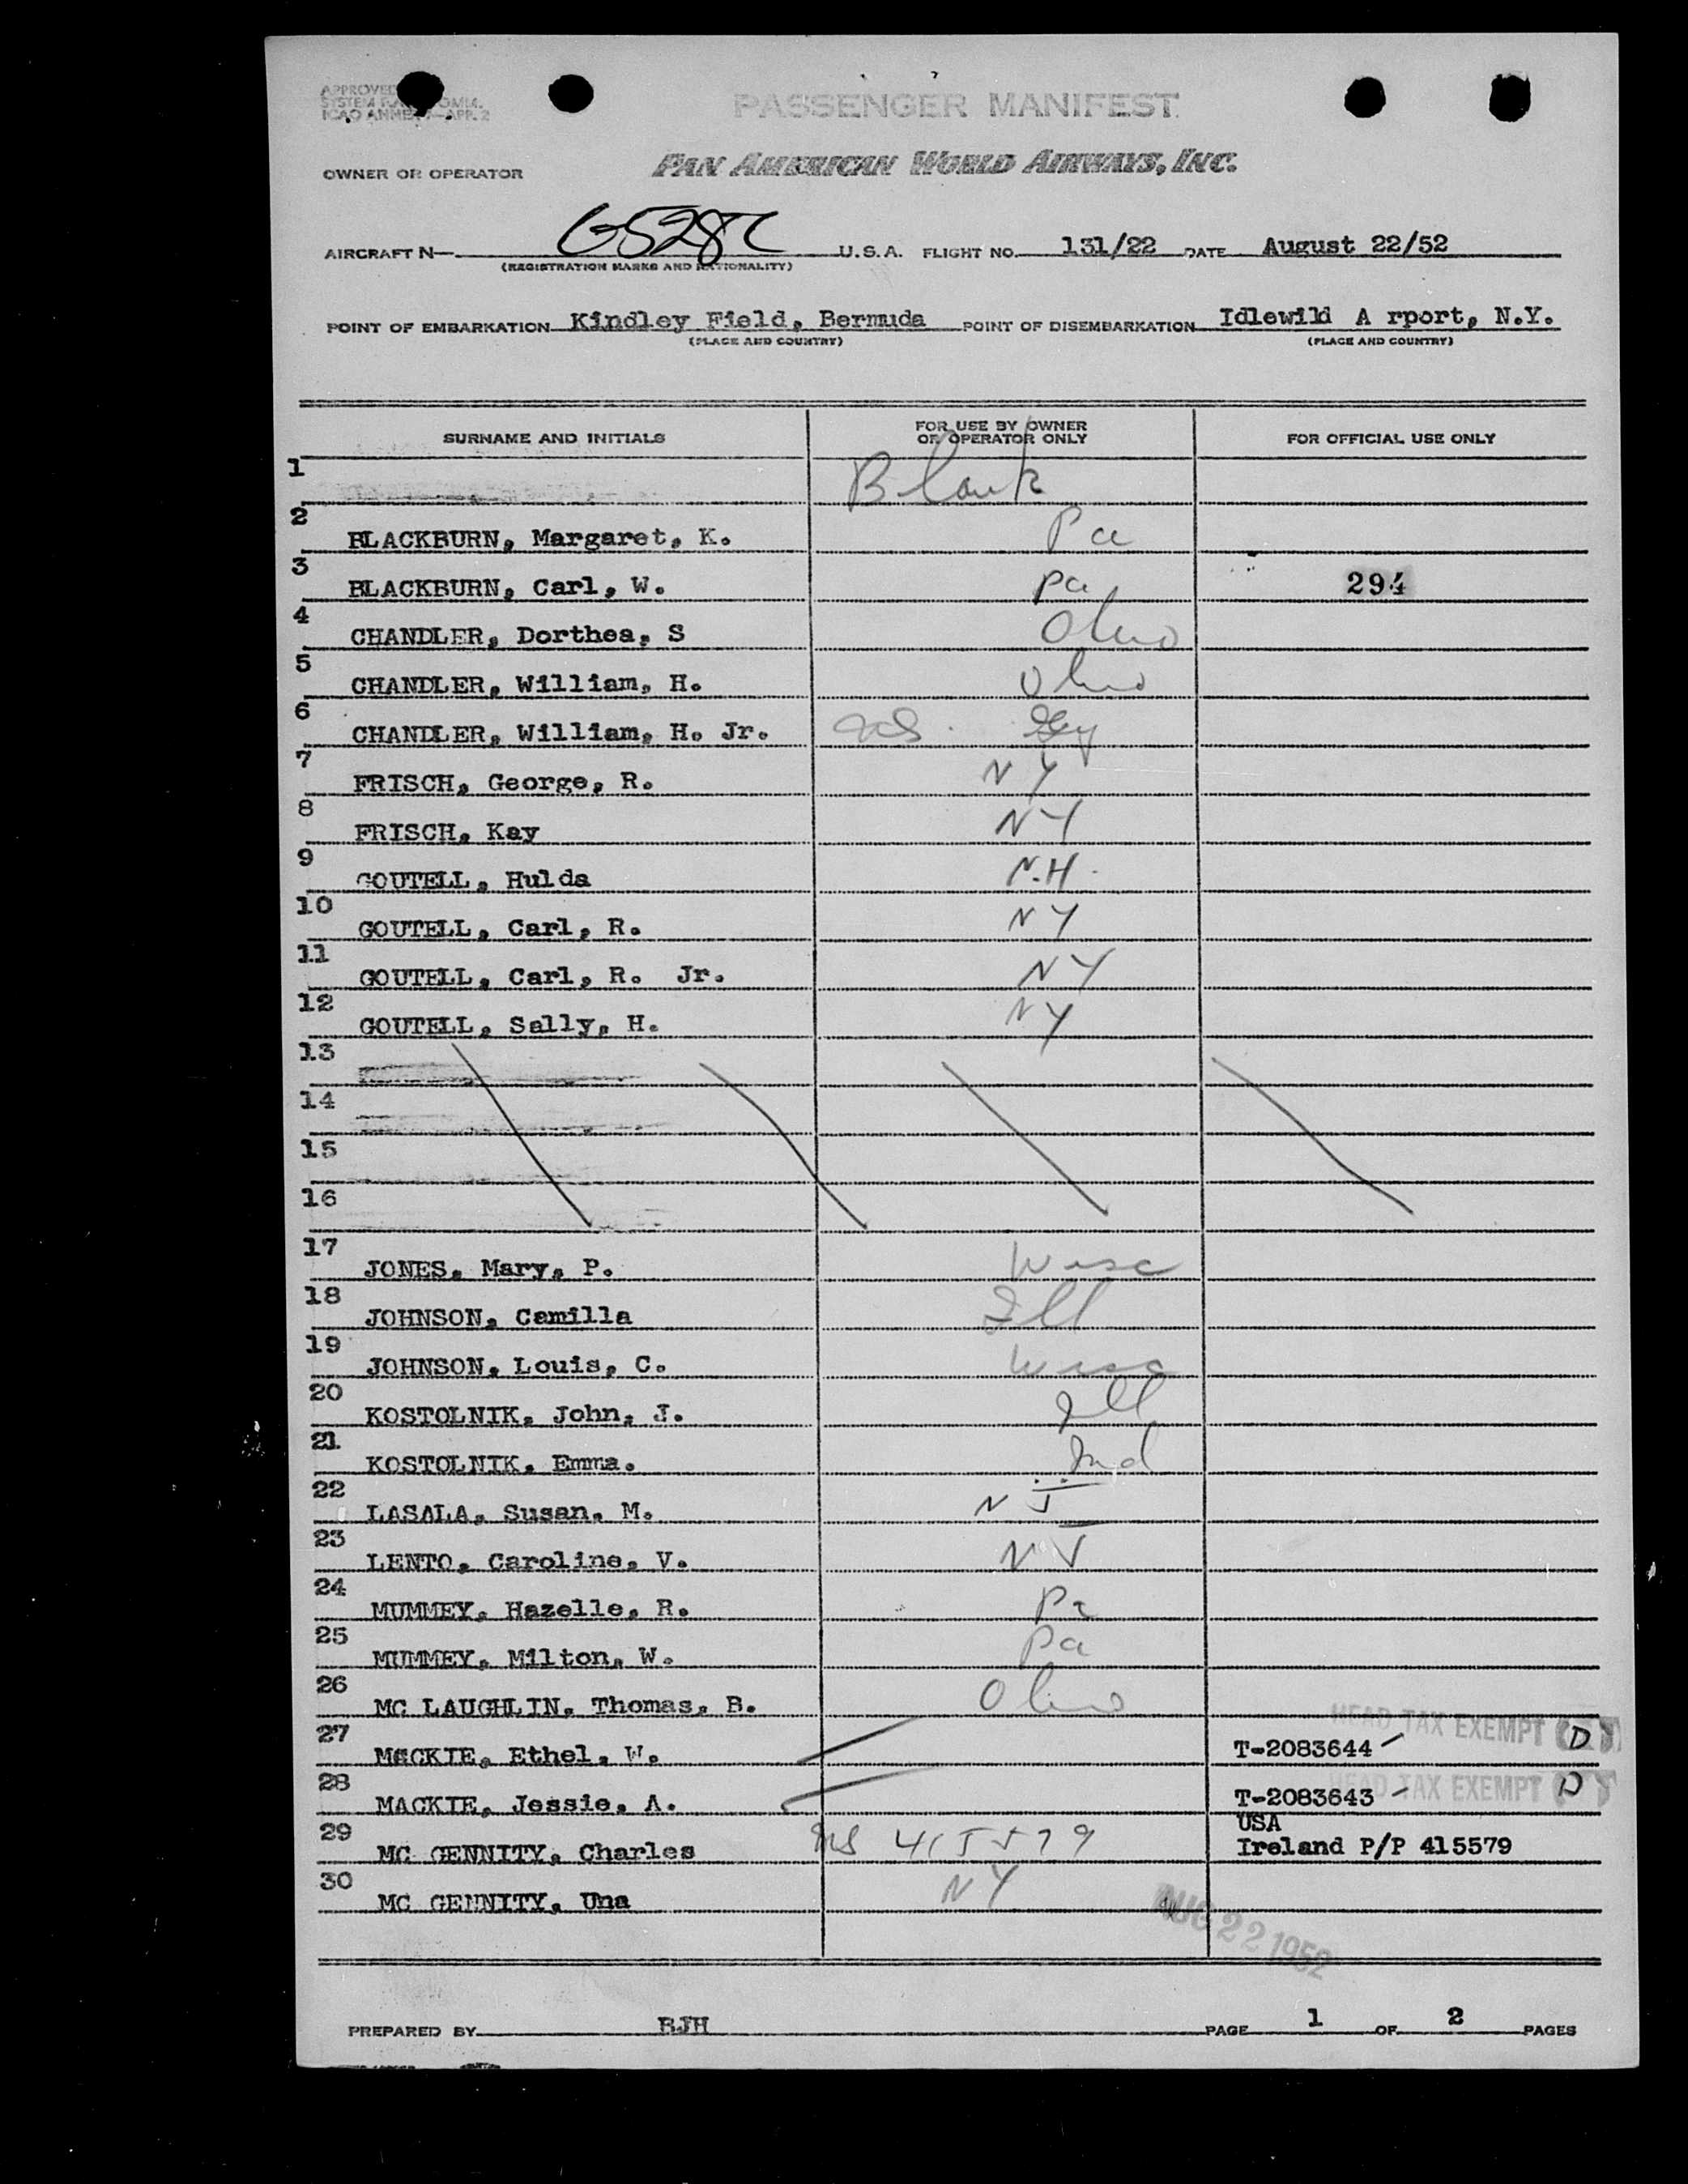 APPROVED
SYSTEM
ICAO ANNEX APP. 2
PASSENGER MANIFEST
OWNER OR OPERATOR PAN AMERICAN WORLD AIRWAYS, INC.
AIRCRAFT N— 6528C U.S.A. FLIGHT NO. 131/22 DATE August 22/52
(REGISTRATION MARKS AND NATIONALITY)
POINT OF EMBARKATION Kindley Field, Bermuda POINT OF DISEMBARKATION Idlewild A rport, N.Y.
(PLACE AND COUNTRY) (PLACE AND COUNTRY)
SURNAME AND INITIALS FOR USE BY OWNER OR OPERATOR ONLY FOR OFFICIAL USE ONLY
1 Blank
2 BLACKBURN, Margaret, K. Pa
3 BLACKBURN, Carl, W. Pa 294
4 CHANDLER, Dorthea, S Ohio
5 CHANDLER, William, H. Ohio
6 CHANDLER, William, H. Jr.
7 FRISCH, George, R. NY
8 FRISCH, Kay NY
9 GOUTELL, Hulda N.H.
10 GOUTELL, Carl, R. NY
11 GOUTELL, Carl, R. Jr. NY
12 GOUTELL, Sally, H. NY
13
14
15
16
17 JONES, Mary, P. Wisc
18 JOHNSON, Camilla Ill
19 JOHNSON, Louis, C. Wisc
20 KOSTOLNIK, John, J. Ill
21 KOSTOLNIK, Emma. Ind
22 LASALA, Susan, M. NJ
23 LENTO, Caroline, V. NJ
24 MUMMEY, Hazelle, R. Pa
25 MUMMEY, Milton, W. Pa
26 MC LAUGHLIN, Thomas, B. Ohio
27 MACKIE, Ethel, W. T-2083644 HEAD TAX EXEMPT D
28 MACKIE, Jessie, A. T-2083643 HEAD TAX EXEMPT D
USA
29 MC GENNITY, Charles 415579 Ireland P/P 415579
30 MC GENNITY, Una NY
AUG 22 1952
PREPARED BY RJH PAGE 1 OF 2 PAGES